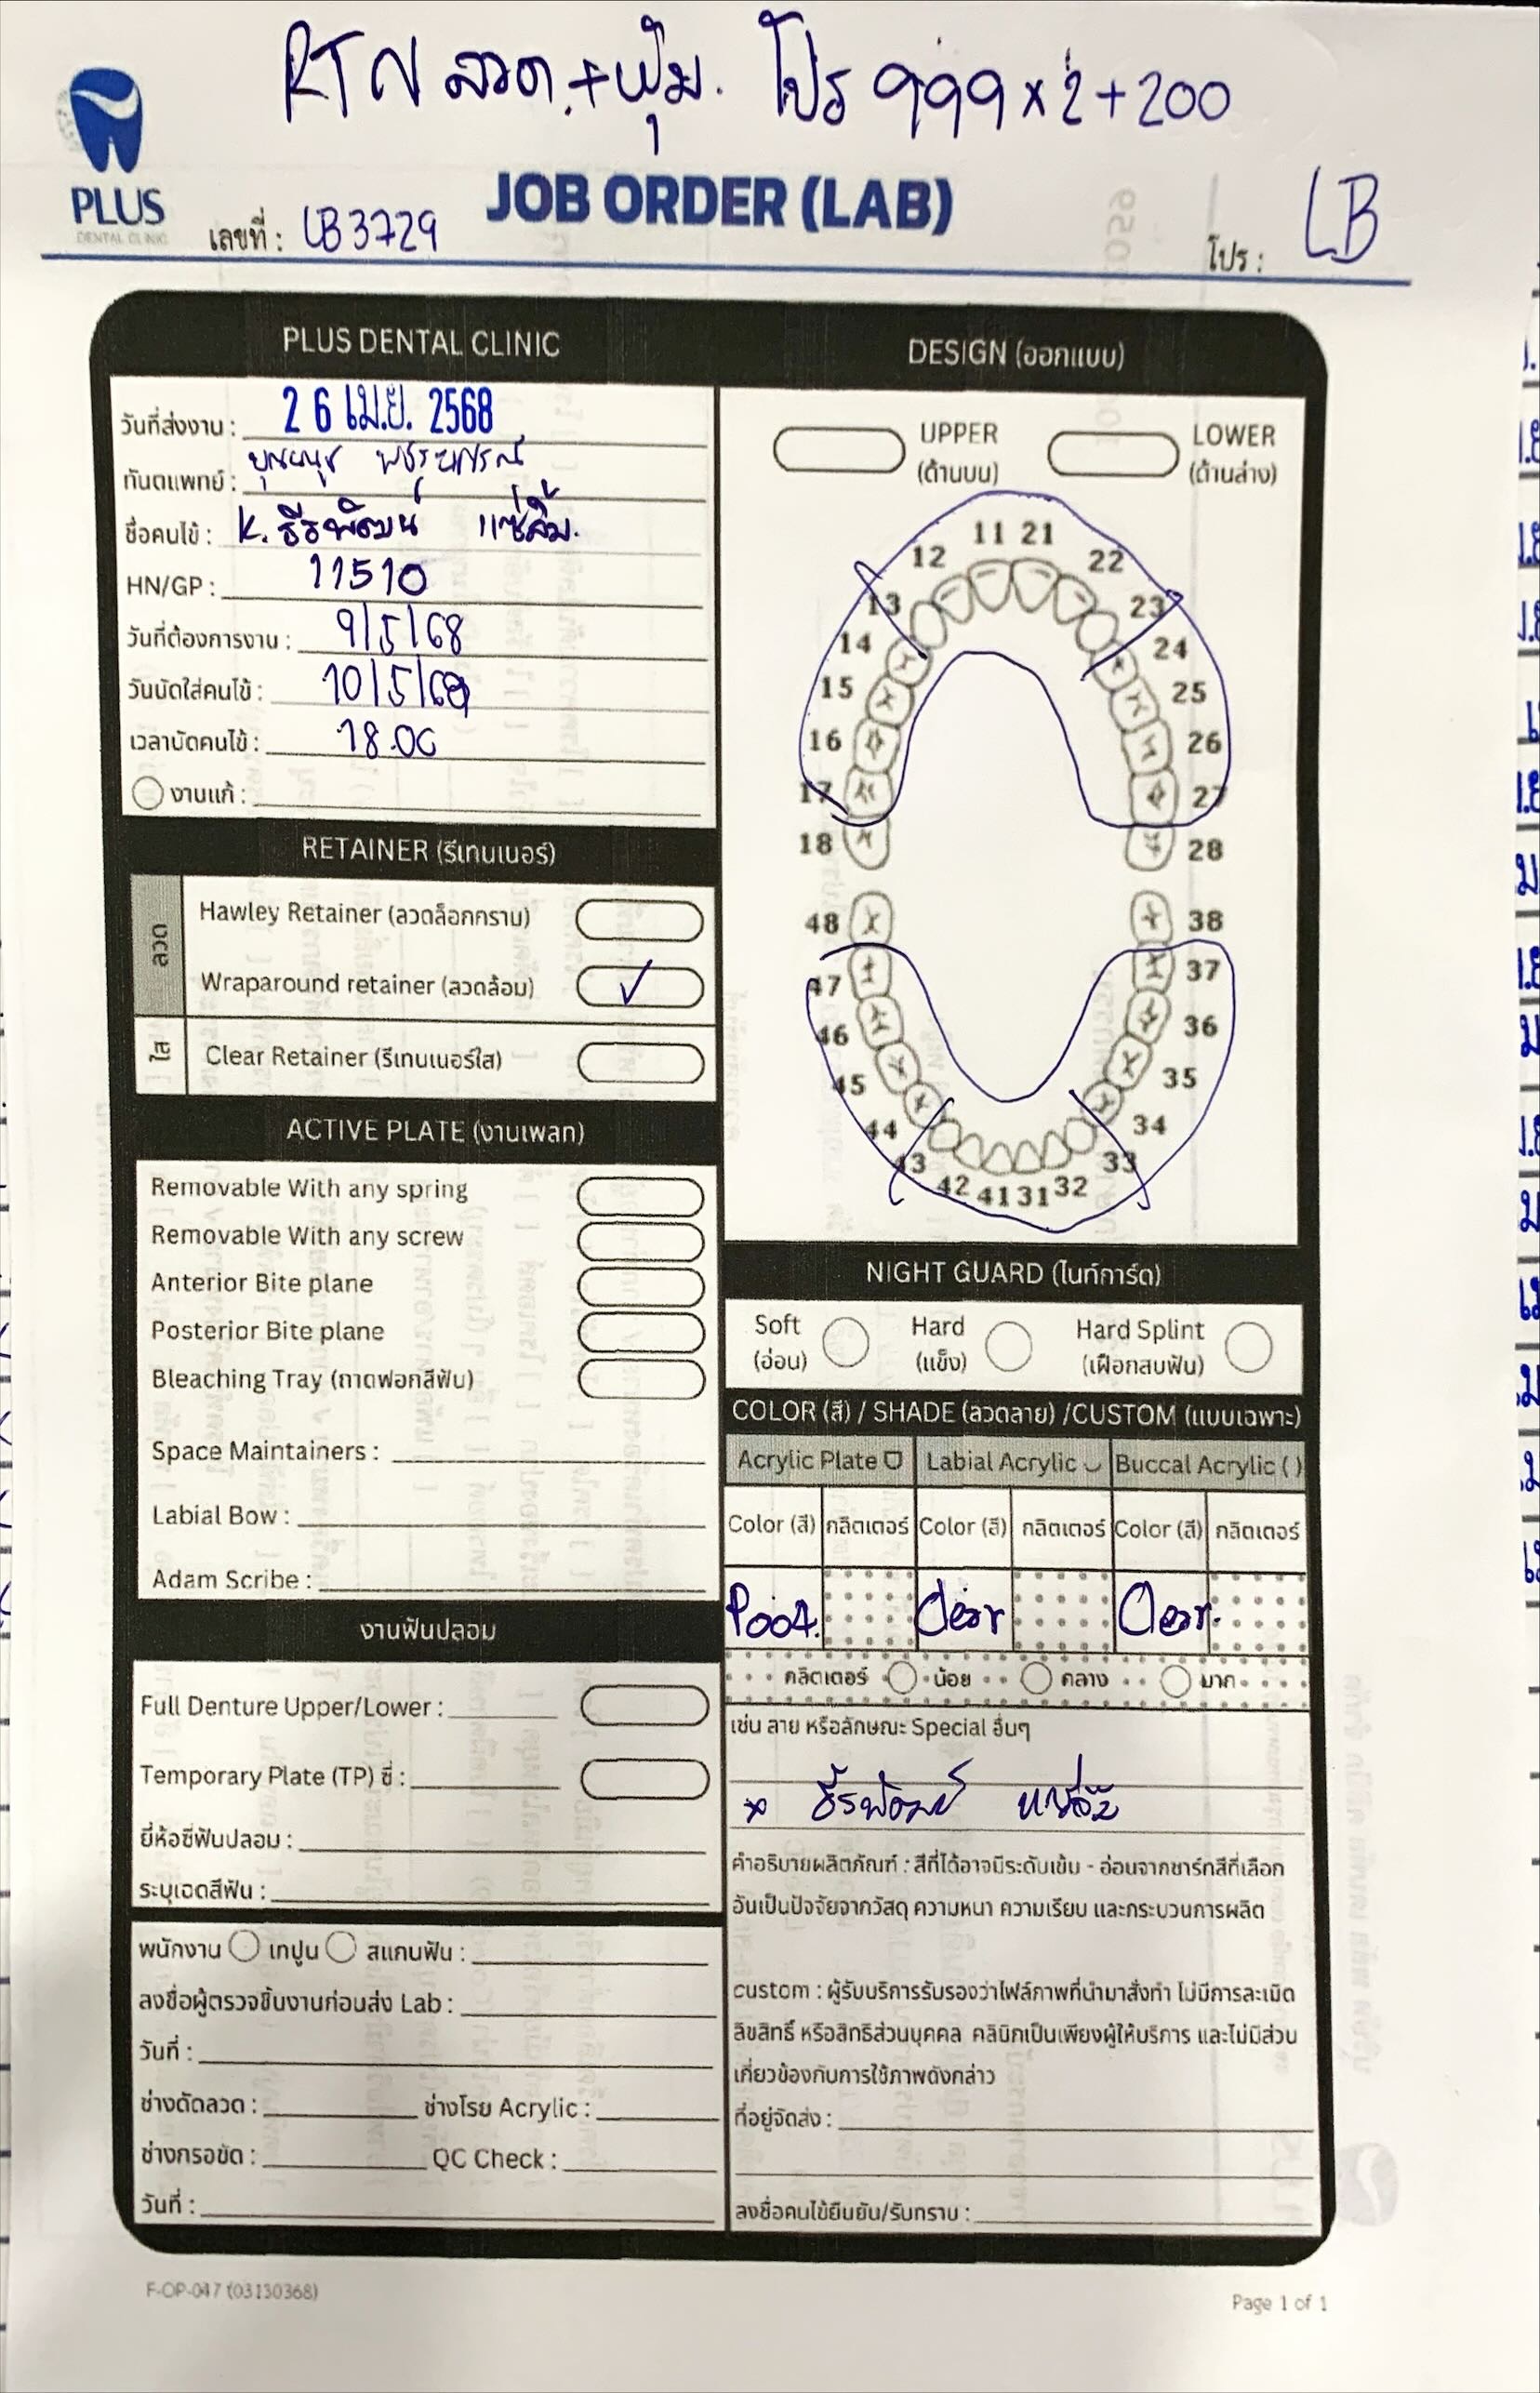 RTN ลวด.+หุ้ม. โปร 999x2+200
PLUS
DENTAL CLINIC
เลขที่ : LB3729
JOB ORDER (LAB)
โปร : LB
PLUS DENTAL CLINIC
วันที่ส่งงาน : 26 เม.ย. 2568
ทันตแพทย์ :
ชื่อคนไข้ : K. ธีรพัฒน์ แซ่ลิ้ม.
HN/GP : 11510
วันที่ต้องการงาน : 9/5/68
วันนัดใส่คนไข้ : 10/5/68
เวลานัดคนไข้ : 18.00
งานแก้ :
RETAINER (รีเทนเนอร์)
ลวด
Hawley Retainer (ลวดล็อกกราม)
Wraparound retainer (ลวดล้อม) ✓
ใส
Clear Retainer (รีเทนเนอร์ใส)
ACTIVE PLATE (งานเพลท)
Removable With any spring
Removable With any screw
Anterior Bite plane
Posterior Bite plane
Bleaching Tray (ถาดฟอกสีฟัน)
Space Maintainers :
Labial Bow :
Adam Scribe :
งานฟันปลอม
Full Denture Upper/Lower :
Temporary Plate (TP) ซี่ :
ยี่ห้อซี่ฟันปลอม :
ระบุเฉดสีฟัน :
พนักงาน เทปูน สแกนฟัน :
ลงชื่อผู้ตรวจชิ้นงานก่อนส่ง Lab :
วันที่ :
ช่างดัดลวด : ช่างโรย Acrylic :
ช่างกรอขัด : QC Check :
วันที่ :
DESIGN (ออกแบบ)
UPPER LOWER
(ด้านบน) (ด้านล่าง)
11 21
12 22
13 23
14 24
15 25
16 26
17 27
18 28
48 38
47 37
46 36
45 35
44 34
43 33
42 41 31 32
NIGHT GUARD (ไนท์การ์ด)
Soft Hard Hard Splint
(อ่อน) (แข็ง) (เฝือกสบฟัน)
COLOR (สี) / SHADE (ลวดลาย) /CUSTOM (แบบเฉพาะ)
Acrylic Plate Labial Acrylic Buccal Acrylic ( )
Color (สี) กลิตเตอร์ Color (สี) กลิตเตอร์ Color (สี) กลิตเตอร์
P004. Clear Clear.
กลิตเตอร์ น้อย กลาง มาก
เช่น ลาย หรือลักษณะ Special อื่นๆ
* ธีรพัฒน์ แซ่ลิ้ม
คำอธิบายผลิตภัณฑ์ : สีที่ได้อาจมีระดับเข้ม - อ่อนจากชาร์ทสีที่เลือก
อันเป็นปัจจัยจากวัสดุ ความหนา ความเรียบ และกระบวนการผลิต
custom : ผู้รับบริการรับรองว่าไฟล์ภาพที่นำมาสั่งทำ ไม่มีการละเมิด
ลิขสิทธิ์ หรือสิทธิส่วนบุคคล คลินิกเป็นเพียงผู้ให้บริการ และไม่มีส่วน
เกี่ยวข้องกับการใช้ภาพดังกล่าว
ที่อยู่จัดส่ง :
ลงชื่อคนไข้ยืนยัน/รับทราบ :
F-OP-047 (03130368)
Page 1 of 1